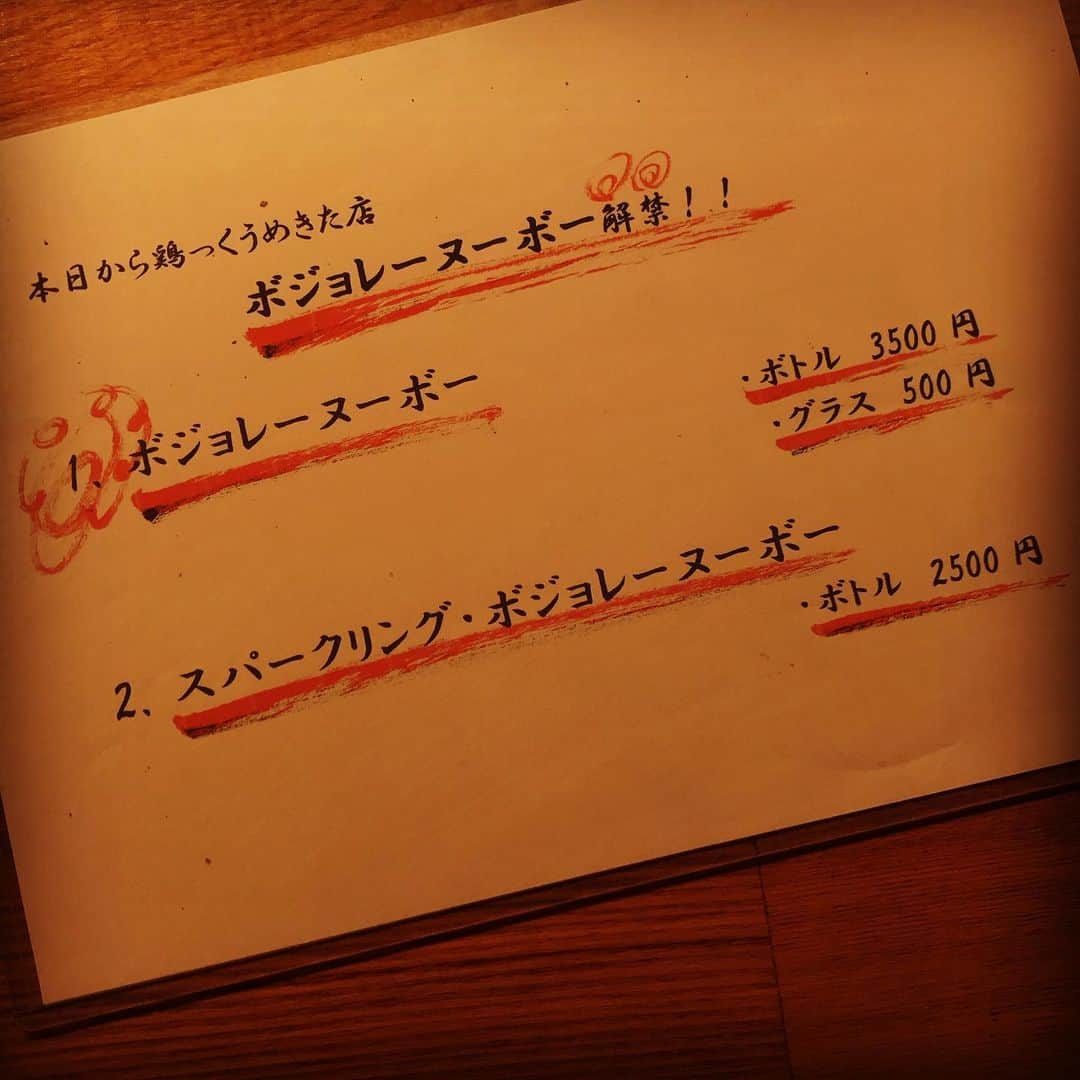 本日から鶏っくうめきた店
ボジョレーヌーボー解禁！！
1、ボジョレーヌーボー
・ボトル 3500 円
・グラス 500 円
2、スパークリング・ボジョレーヌーボー
・ボトル 2500 円